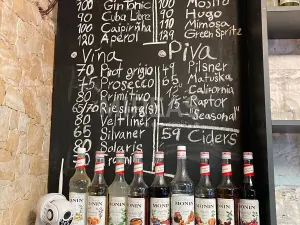 100 GinTonic
90 Cuba Libre
100 Caipiriňha
120 Aperol
100 Mosito
90 Hugo
100 Mimosa
129 Green Spritz
Vína
70 Pinot grigio
75 Prosecco
80 Primitivo
65/70 Riesling(s)
80 Veltliner
65 Silvaner
80 Solaris
Piva
49 Pilsner
Matuška
California
Raptor
"Seasonal"
59 Ciders
MONIN
MONIN
MONIN
MONIN
MONIN
MONIN
MONIN
MONIN